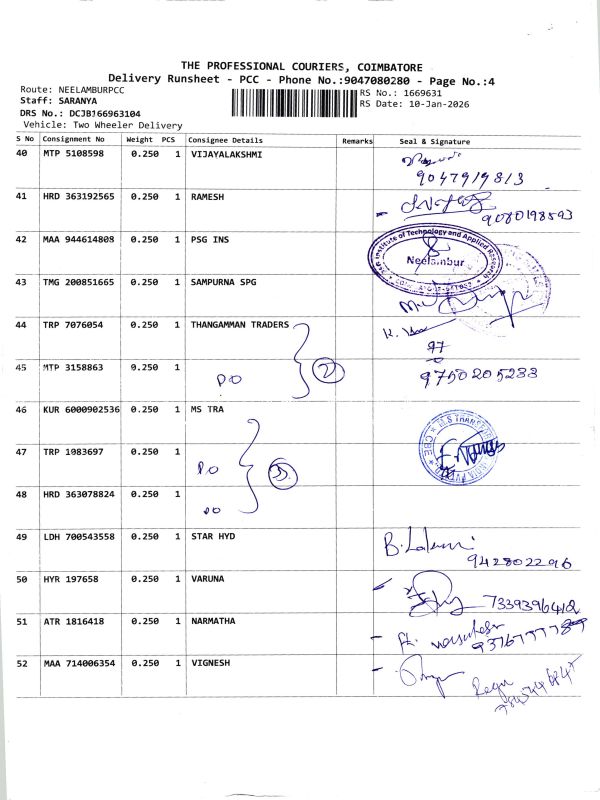 THE PROFESSIONAL COURIERS, COIMBATORE
Delivery Runsheet - PCC - Phone No.:9047080280 - Page No.:4
Route: NEELAMBURPCC
Staff: SARANYA
DRS No.: DCJB166963104
Vehicle: Two Wheeler Delivery
RS No.: 1669631
RS Date: 10-Jan-2026
S No Consignment No Weight PCS Consignee Details Remarks Seal & Signature
40 MTP 5108598 0.250 1 VIJAYALAKSHMI
9047919813
41 HRD 363192565 0.250 1 RAMESH
9080198593
42 MAA 944614808 0.250 1 PSG INS
Institute of Technology and Applied Research
Neelambur
43 TMG 200851665 0.250 1 SAMPURNA SPG
44 TRP 7076054 0.250 1 THANGAMMAN TRADERS
K.
45 MTP 3158863 0.250 1 DO 2
97
9750205233
46 KUR 6000902536 0.250 1 MS TRA
47 TRP 1083697 0.250 1 DO 3
CBE
48 HRD 363078824 0.250 1 DO
49 LDH 700543558 0.250 1 STAR HYD
942802296
50 HYR 197658 0.250 1 VARUNA
7339396412
51 ATR 1816418 0.250 1 NARMATHA
52 MAA 714006354 0.250 1 VIGNESH
Regu